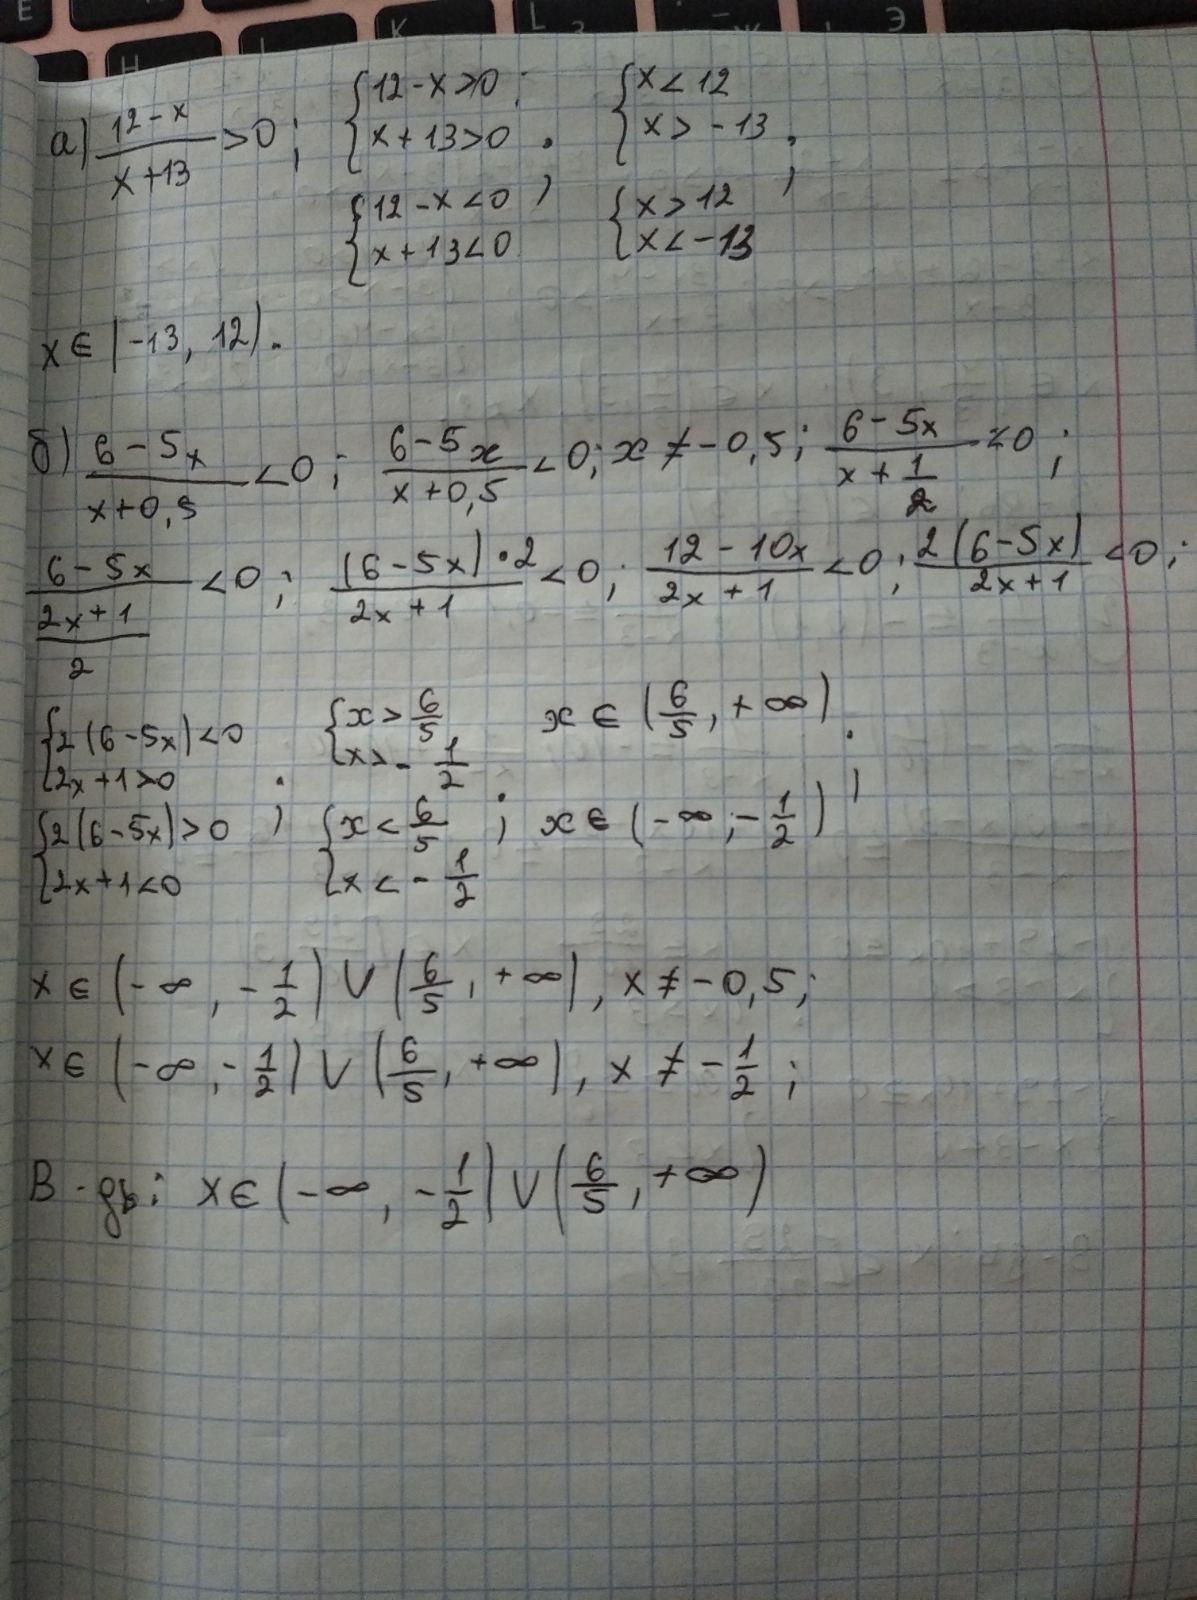 а) (12-x)/(x+13) > 0; {12-x>0; x+13>0; {x<12 x>-13;
{12-x<0 x+13<0 {x>12 x<-13
x ∈ (-13, 12).
б) (6-5x)/(x+0,5) < 0; (6-5x)/(x+0,5) < 0; x ≠ -0,5; (6-5x)/(x+1/2) < 0;
(6-5x)/((2x+1)/2) < 0; ((6-5x)·2)/(2x+1) < 0; (12-10x)/(2x+1) < 0; (2(6-5x))/(2x+1) < 0;
{2(6-5x)<0 2x+1>0; {x>6/5 x>-1/2; x ∈ (6/5, +∞);
{2(6-5x)>0 2x+1<0 {x<6/5 x<-1/2 x ∈ (-∞; -1/2)
x ∈ (-∞, -1/2) ∪ (6/5, +∞), x ≠ -0,5;
x ∈ (-∞, -1/2) ∪ (6/5, +∞), x ≠ -1/2;
В-дь: x ∈ (-∞, -1/2) ∪ (6/5, +∞)